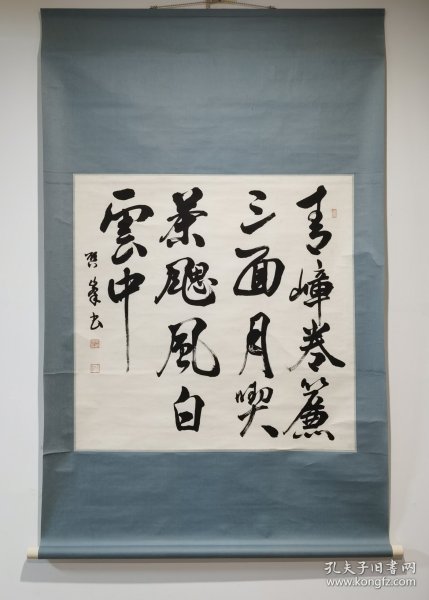 青嶂卷簾
三面月喫
茶颸風白
雲中
峯書
孔夫子旧书网
www.kongfz.com